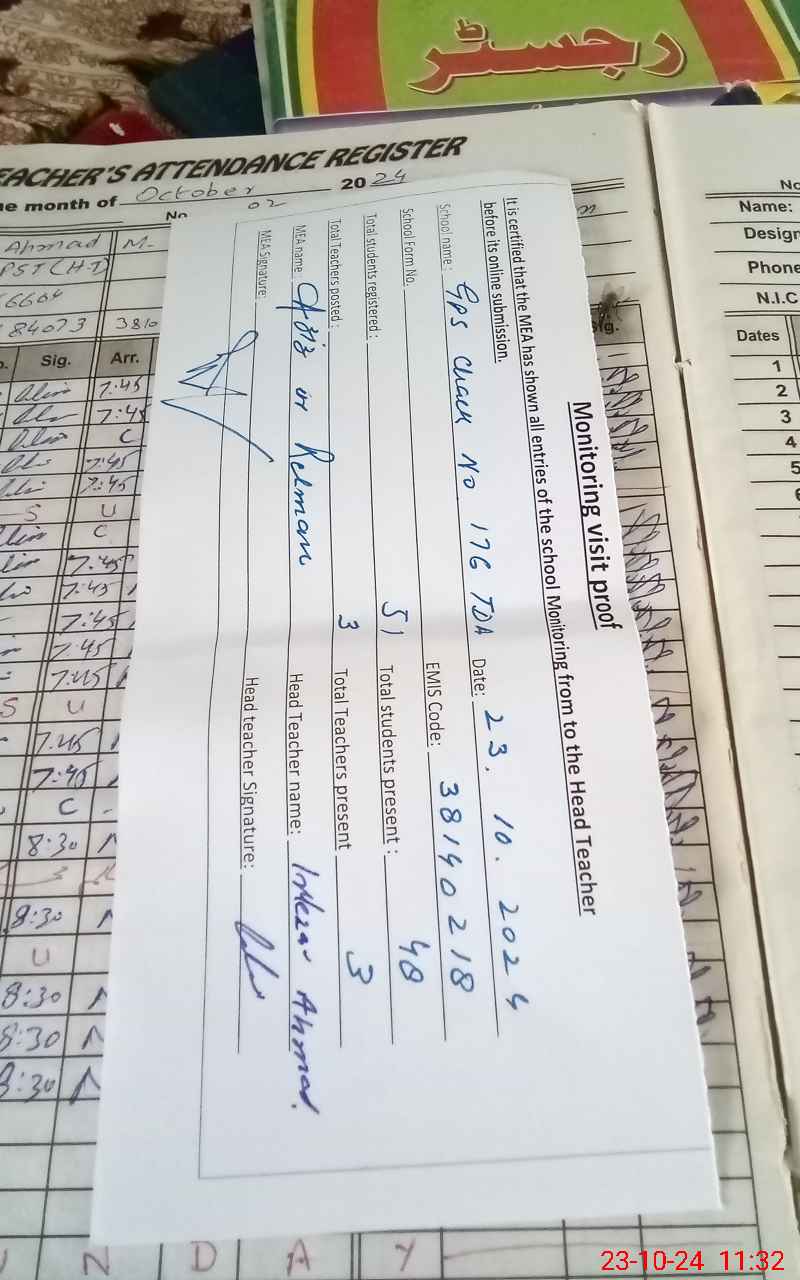 رجسٹر
EACHER'S ATTENDANCE REGISTER
e month of October 2024
No 02
Ahmad M-
PST (H-T)
6604
84073 3810
Sig. Arr.
7:45
7:45
C
7:45
7:45
S U
C
7:45
7:45
7:45
7:45
7:45
S U
7:45
7:45
C
8:30
8:30
U
8:30
8:30
8:30
N D A Y
Monitoring visit proof
It is certified that the MEA has shown all entries of the school Monitoring from to the Head Teacher
before its online submission.
School name: GPS Chack No 176 TDA Date: 23.10.2024
School Form No. EMIS Code: 38140218
Total students registered: 51 Total students present: 48
Total Teachers posted: 3 Total Teachers present 3
MEA name: Aziz ur Rehman Head Teacher name: Intezar Ahmad.
MEA Signature: Head teacher Signature:
Sig.
No
Name:
Design
Phone
N.I.C
Dates
1
2
3
4
5
6
23-10-24 11:32